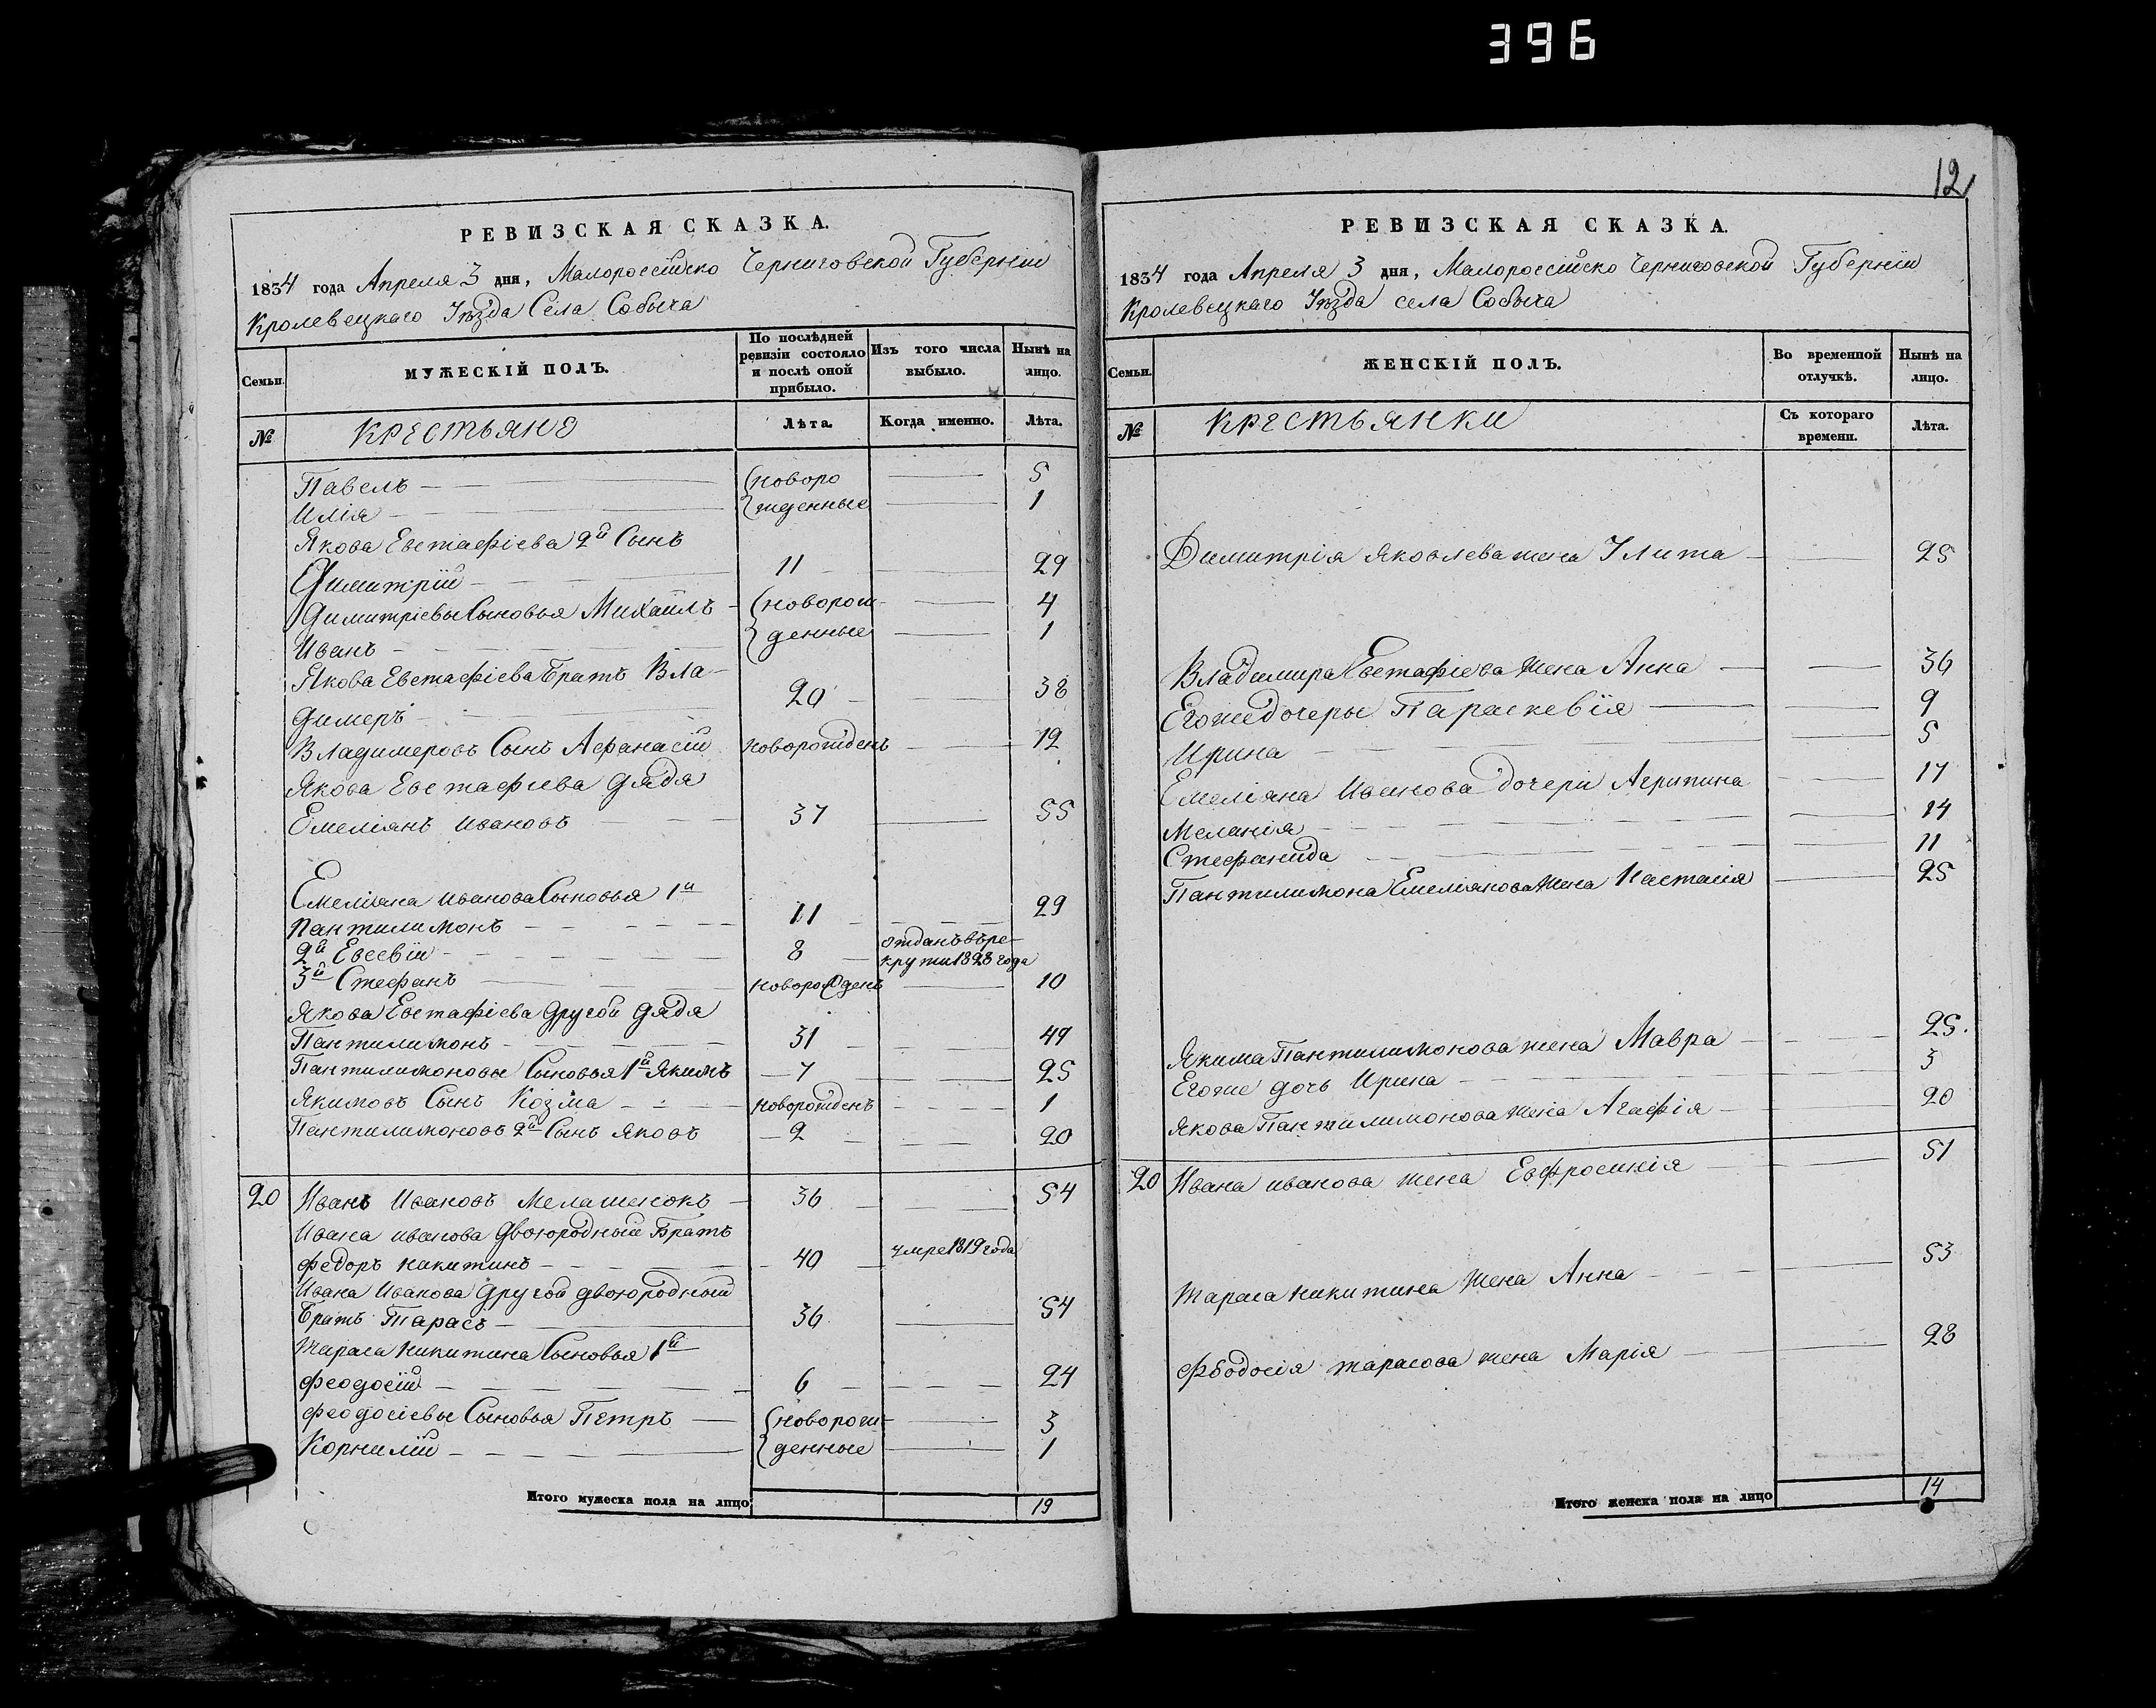 396
РЕВИЗСКАЯ СКАЗКА.
1834 года Апреля 3 дня, Малороссійско Черниговской Губерніи
Кролевецкаго Уѣзда Села Собыча
Семьи. МУЖЕСКІЙ ПОЛЪ. По послѣдней ревизіи состояло и послѣ оной прибыло. Изъ того числа выбыло. Нынѣ на лицо.
№ Крестьяне Лѣта. Когда именно. Лѣта.
Павелъ (новоро 5
Илія жденные 1
Якова Евстафіева 2й Сынъ
Димитрій 11 29
Димитріевы Сыновья Михаилъ (новорож- 4
Иванъ денные 1
Якова Евстафіева Братъ Вла-
димеръ 20 38
Владимеровъ Сынъ Афанасій новорожденъ 12
Якова Евстафіева дядя
Емеліянъ Ивановъ 37 55
Емеліяна Иванова Сыновья 1й
Пантилимонъ 11 29
2й Евсевій 8 отданъ въ ре-
круты 1828 года
3й Стефанъ новорожденъ 10
Якова Евстафіева другой дядя
Пантилимонъ 31 49
Пантилимоновы Сыновья 1й Якимъ 7 25
Якимовъ Сынъ Козма новорожденъ 1
Пантилимоновъ 2й Сынъ Яковъ 2 20
20 Иванъ Ивановъ Мелашенокъ 36 54
Ивана Иванова двоюродный Братъ
Федоръ Никитинъ 40 умре 1819 года
Ивана Иванова другой двоюродный
Братъ Тарасъ 36 54
Тараса Никитина Сыновья 1й
Феодосій 6 24
Феодосіевы Сыновья Петръ (новорож- 3
Корнилій денные 1
Итого мужеска пола на лицо 19
12
РЕВИЗСКАЯ СКАЗКА.
1834 года Апреля 3 дня, Малороссійско Черниговской Губерніи
Кролевецкаго Уѣзда села Собыча
Семьи. ЖЕНСКІЙ ПОЛЪ. Во временной отлучкѣ. Нынѣ на лицо.
№ Крестьянки Съ котораго времени. Лѣта.
Димитрія Яковлева жена Улита 25
Владимира Евстафіева жена Анна 36
Его же дочеры Параскевія 9
Ирина 5
Емеліяна Иванова дочери Агрипина 17
Меланія 14
Стефанида 11
Пантилимона Емеліянова жена Настасія 25
Якима Пантилимонова жена Мавра 25.
Его же дочь Ирина 3
Якова Пантилимонова жена Агафія 20
20 Ивана Иванова жена Евфросинія 51
Тараса Никитина жена Анна 53
Феодосія Тарасова жена Марія 28
Итого женска пола на лицо 14